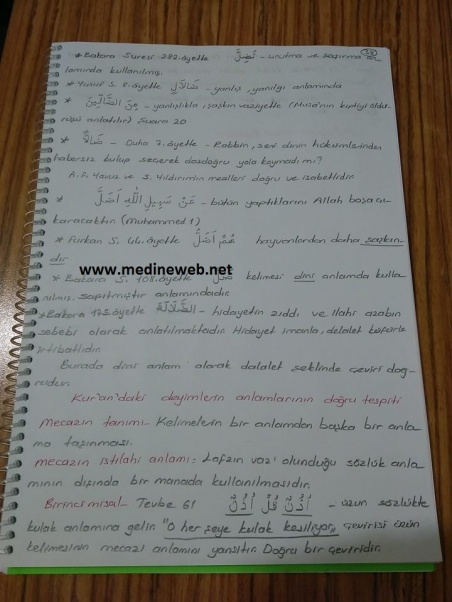 * Bakara Suresi 282. âyette تَضِلَّ - unutma ve şaşırma an
lamında kullanılmış.
* Yusuf S. 8. âyette ضَلَالٍ - yanlış, yanılgı anlamında
* مِنَ الضَّالِّينَ - yanlışlıkla, şaşkın vaziyette (Musa'nın kıptiyi öldü-
rüşü anlatılır) Şuara 20
* ضَالًّا - Duha 7. âyette - Rabbin, seni dinin hükümlerinden
habersiz bulup seçerek dosdoğru yola koymadı mı?
ve S. Yıldırımın mealleri doğru ve isabetlidir.
* عَنْ سَبِيلِ اللّٰهِ أَضَلَّ - bütün yaptıklarını Allah boşa çı
karacaktır. (Muhammed 1)
* Furkan S. 44. âyette هُمْ أَضَلُّ hayvanlardan daha şaşkın-
dır
www.medineweb.net
* Bakara S. 108. âyette ضَلَّ kelimesi dinî anlamda kulla
nılmış. sapıtmıştır anlamındadır.
* Bakara 175. âyette الضَّلَالَةَ - hidayetin zıddı ve ilahi azabın
sebebi olarak anlatılmaktadır. Hidayet imanla, delalet küfürle
irtibatlıdır.
Burada dinî anlam olarak dalalet şeklinde çeviri doğ-
rudur.
Kur'an'daki deyimlerin anlamlarının doğru tespiti
Mecazın tanımı - Kelimelerin bir anlamdan başka bir anla
ma taşınması.
Mecazın ıstılahi anlamı : Lafzın vaz' olunduğu sözlük anla
mının dışında bir manada kullanılmasıdır.
Birinci misal - Tevbe 61 أُذُنٌ قُلْ أُذُنُ - üzün sözlükte
kulak anlamına gelir. "O her şeye kulak kesiliyor" çevirisi üzün
kelimesinin mecazi anlamını yansıtır. Doğru bir çeviridir.